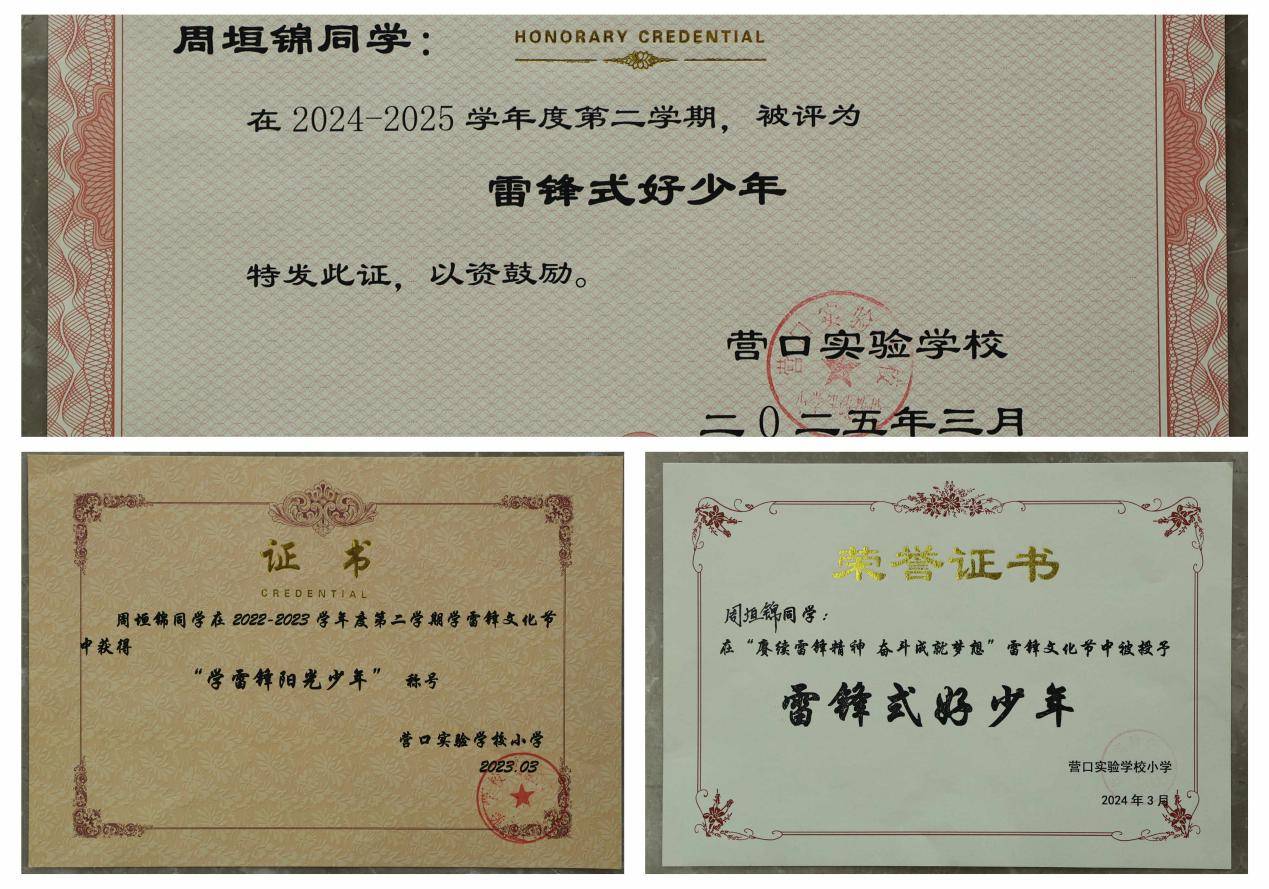 周垣锦同学：
HONORARY CREDENTIAL
在 2024-2025 学年度第二学期，被评为
雷锋式好少年
特发此证，以资鼓励。
营口实验学校
二0二五年三月
证 书
CREDENTIAL
周垣锦同学在 2022-2023 学年度第二学期学雷锋文化节
中获得
“学雷锋阳光少年” 称号
营口实验学校小学
2023.03
荣誉证书
周垣锦同学：
在“赓续雷锋精神 奋斗成就梦想”雷锋文化节中被授予
雷锋式好少年
营口实验学校小学
2024 年 3 月